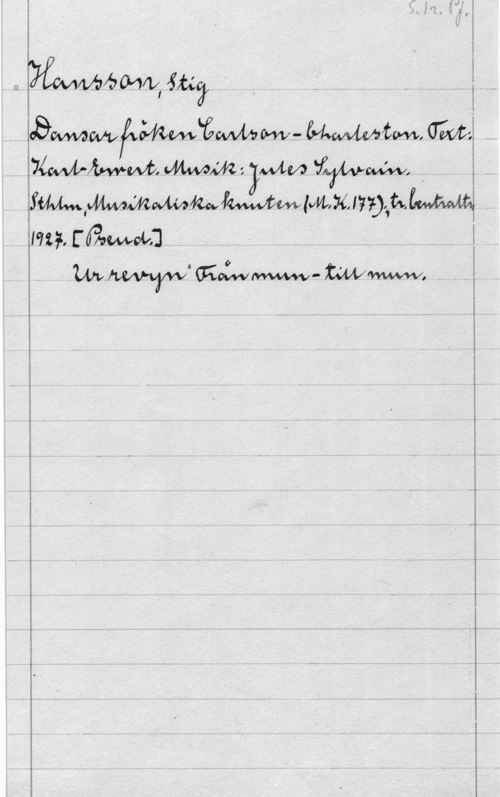 S. 1r. Pf.
Hansson, Stig
Dansar fröken Carlson - Charleston. Text:
Karl-Ewert. Musik: Jules Sylvain.
Sthlm, Musikaliska knuten (M.K.177); tr. Centraltr
1927. [Pseud.]
Ur revyn "Från mun - till mun.